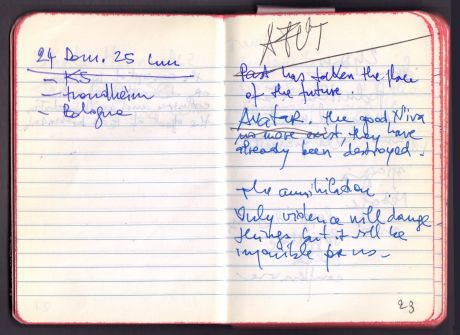 24 Dom. 25 Lun
- KS
- Trondheim
- Bologna
Past has taken the place
of the future.
Avatar. the good, Niva
no more exist, they have
already been destroyed.
The annihilation.
Only violence will change
things but it will be
impossible for us -
23